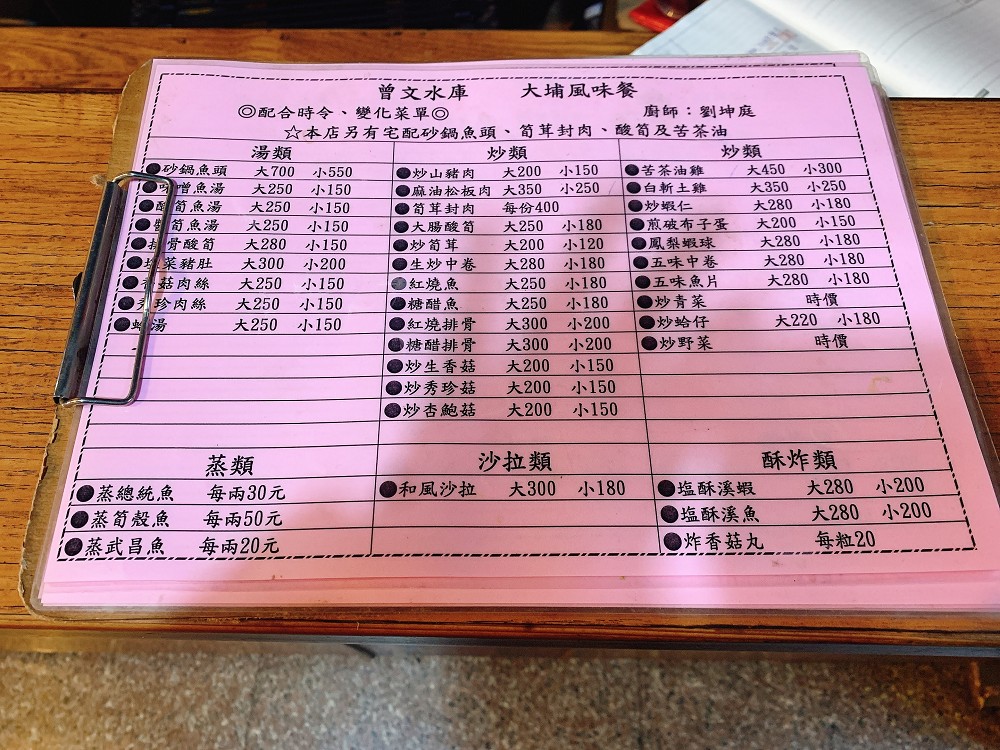 曾文水庫 大埔風味餐
◎配合時令、變化菜單◎ 廚師：劉坤庭
☆本店另有宅配砂鍋魚頭、筍茸封肉、酸筍及苦茶油
湯類 炒類 炒類
砂鍋魚頭 大700 小550 炒山豬肉 大200 小150 苦茶油雞 大450 小300
味噌魚湯 大250 小150 麻油松板肉 大350 小250 白斬土雞 大350 小250
筍魚湯 大250 小150 筍茸封肉 每份400 炒蝦仁 大280 小180
筍魚湯 大250 小150 大腸酸筍 大250 小180 煎破布子蛋 大200 小150
排骨酸筍 大280 小150 炒筍茸 大200 小120 鳳梨蝦球 大280 小180
菜豬肚 大300 小200 生炒中卷 大280 小180 五味中卷 大280 小180
香菇肉絲 大250 小150 紅燒魚 大250 小180 五味魚片 大280 小180
秀珍肉絲 大250 小150 糖醋魚 大250 小180 炒青菜 時價
湯 大250 小150 紅燒排骨 大300 小200 炒蛤仔 大220 小180
糖醋排骨 大300 小200 炒野菜 時價
炒生香菇 大200 小150
炒秀珍菇 大200 小150
炒杏鮑菇 大200 小150
蒸類 沙拉類 酥炸類
蒸總統魚 每兩30元 和風沙拉 大300 小180 塩酥溪蝦 大280 小200
蒸筍殼魚 每兩50元 塩酥溪魚 大280 小200
蒸武昌魚 每兩20元 炸香菇丸 每粒20